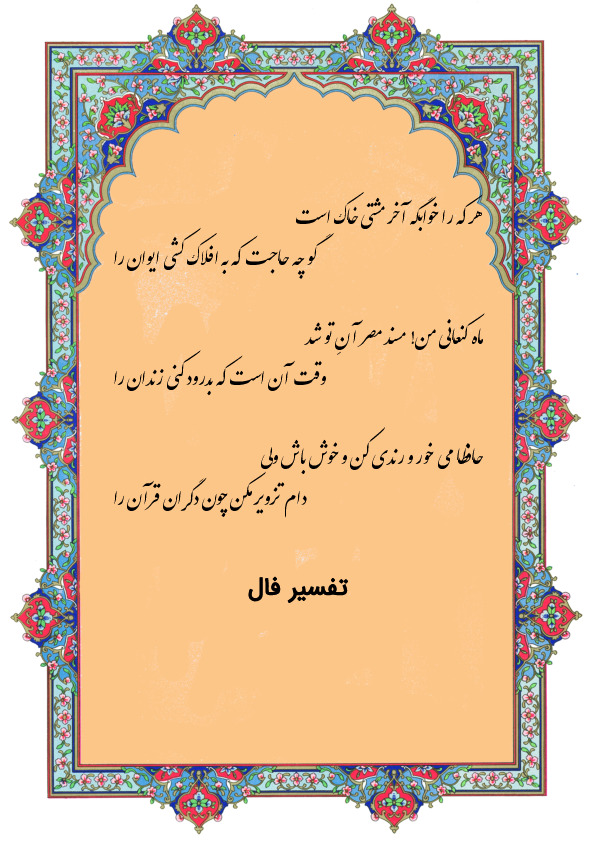 هر که را خوابگه آخر مشتی خاک است
گو چه حاجت که به افلاک کشی ایوان را
ماه کنعانی من! مسند مصر آنِ تو شد
وقت آن است که بدرود کنی زندان را
حافظا می خور و رندی کن و خوش باش ولی
دام تزویر مکن چون دگران قرآن را
تفسیر فال